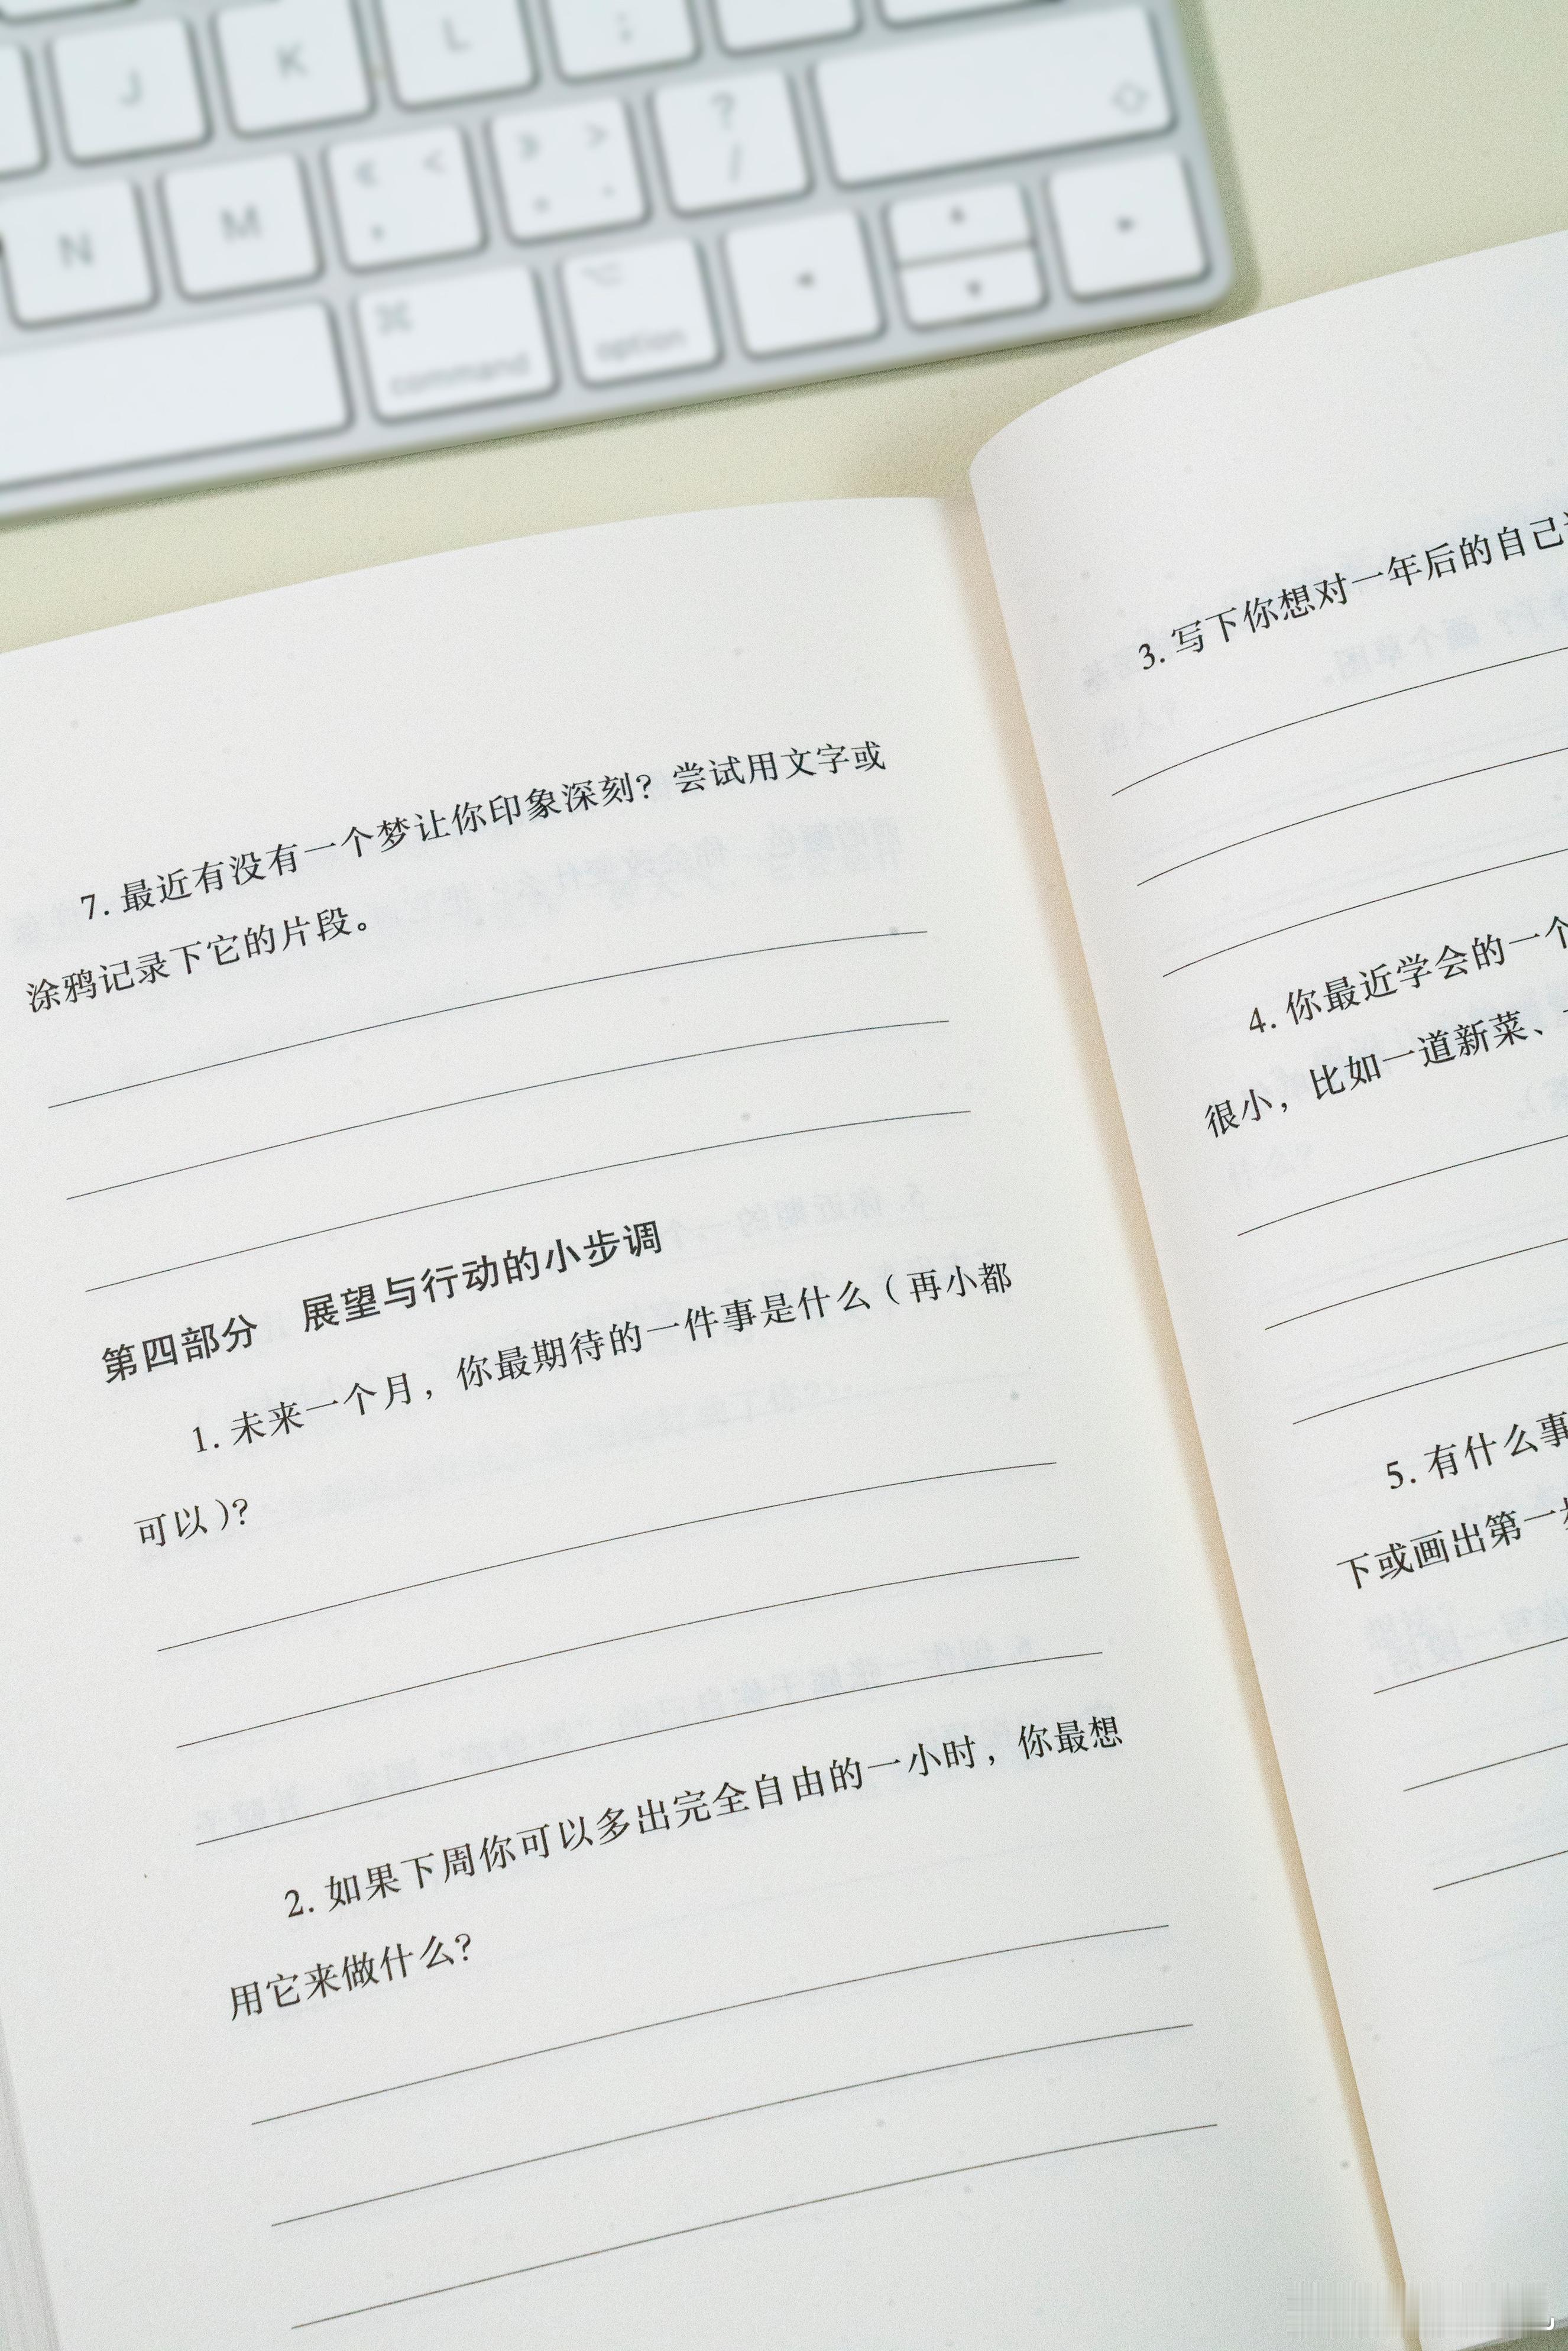 J K L ;
N M « < , » > . ? /
⌘ command ⌥ option
7. 最近有没有一个梦让你印象深刻？尝试用文字或
涂鸦记录下它的片段。
第四部分 展望与行动的小步调
1. 未来一个月，你最期待的一件事是什么（再小都
可以）？
2. 如果下周你可以多出完全自由的一小时，你最想
用它来做什么？
3. 写下你想对一年后的自己
4. 你最近学会的一个
很小，比如一道新菜、
5. 有什么事
下或画出第一步